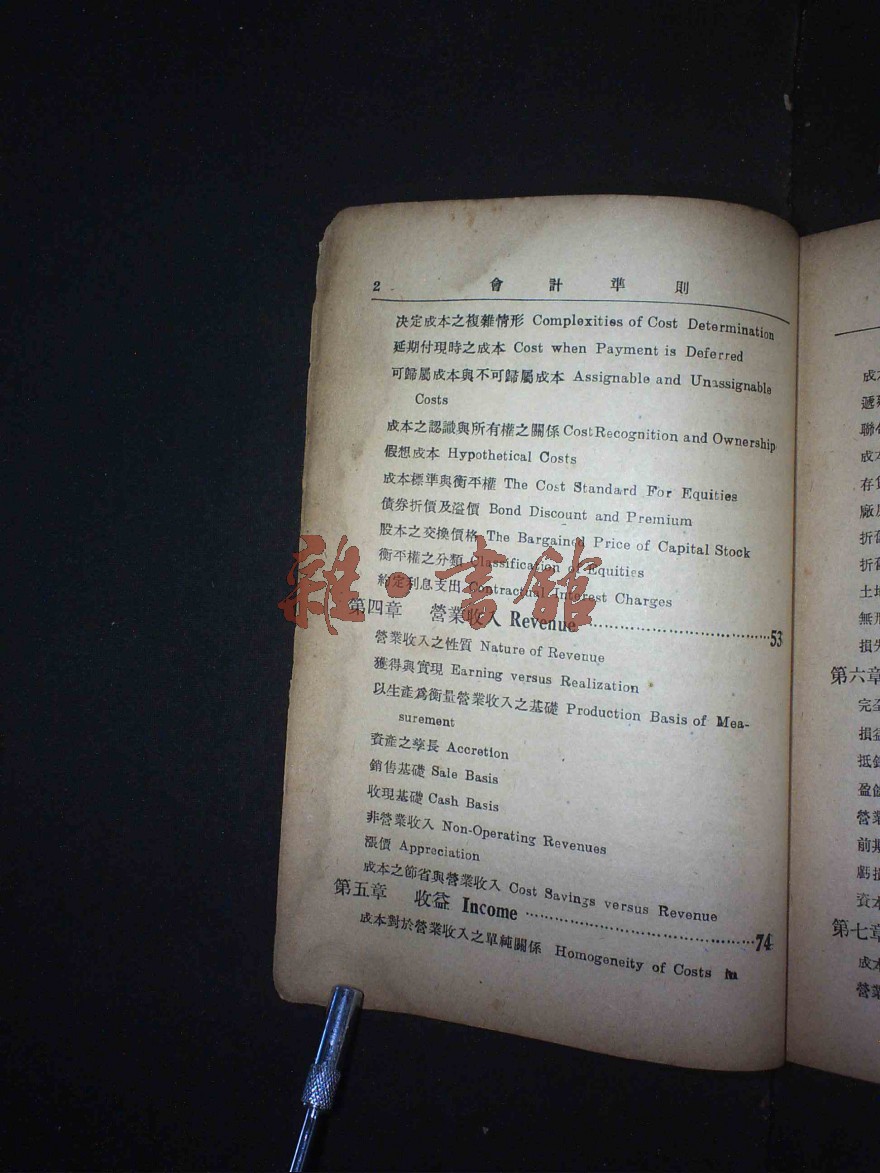 2 會計準則
決定成本之複雜情形 Complexities of Cost Determination
延期付現時之成本 Cost when Payment is Deferred
可歸屬成本與不可歸屬成本 Assignable and Unassignable
Costs
成本之認識與所有權之關係 Cost Recognition and Ownership
假想成本 Hypothetical Costs
成本標準與衡平權 The Cost Standard For Equities
債券折價及溢價 Bond Discount and Premium
股本之交換價格 The Bargained Price of Capital Stock
衡平權之分類 Classification of Equities
約定利息支出 Contractual Interest Charges
第四章 營業收入 Revenue ······53
營業收入之性質 Nature of Revenue
獲得與實現 Earning versus Realization
以生產爲衡量營業收入之基礎 Production Basis of Mea-
surement
資產之孳長 Accretion
銷售基礎 Sale Basis
收現基礎 Cash Basis
非營業收入 Non-Operating Revenues
漲價 Appreciation
成本之節省與營業收入 Cost Savings versus Revenue
第五章 收益 Income ······74
成本對於營業收入之單純關係 Homogeneity of Costs in
雜·書館
成本
聯
成本
存貨
廠
折舊
折舊
土地
無形
損失
第六章
完全
損益
抵銷
盈餘
營業
前期
虧損
資本
第七章
成本
營業